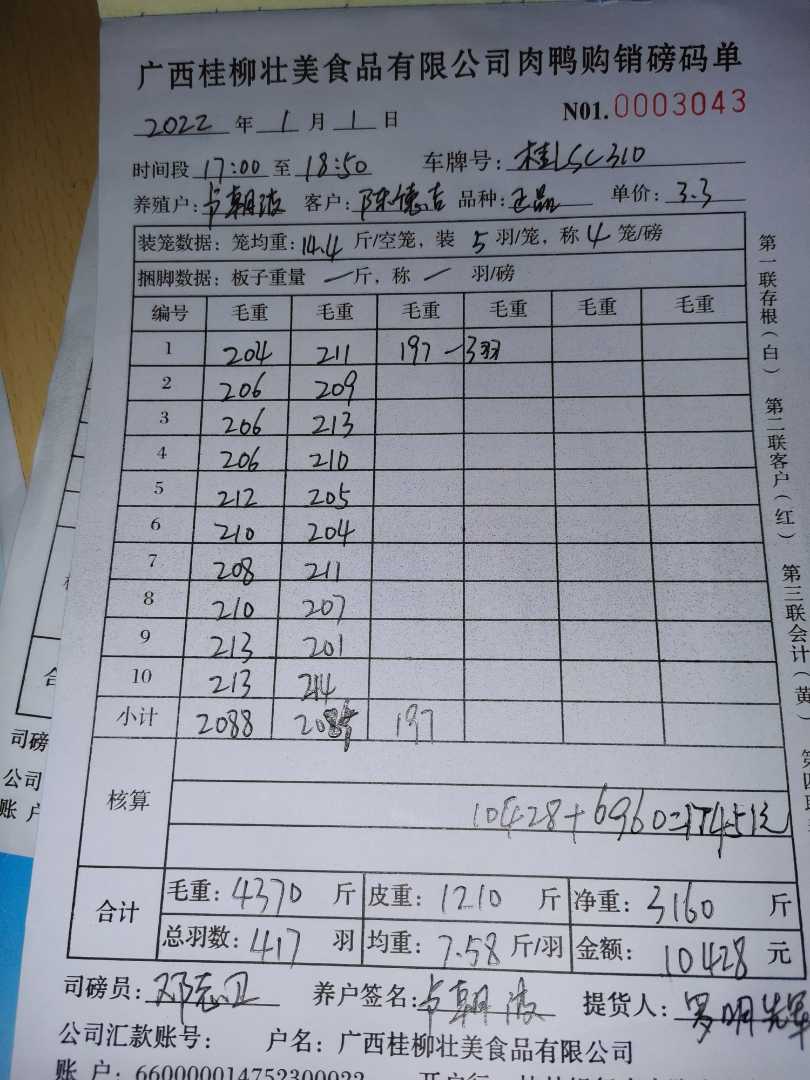 广西桂柳壮美食品有限公司肉鸭购销磅码单
2022 年 1 月 1 日 N01.0003043
时间段 17:00 至 18:50 车牌号: 桂LSC310
养殖户: 卢朝波 客户: 陈德吉 品种: 正品 单价: 3.3
装笼数据: 笼均重: 14.4 斤/空笼, 装 5 羽/笼, 称 4 笼/磅
捆脚数据: 板子重量 一 斤, 称 一 羽/磅
编号 毛重 毛重 毛重 毛重 毛重 毛重
1 204 211 197 -3羽
2 206 209
3 206 213
4 206 210
5 212 205
6 210 204
7 208 211
8 210 207
9 213 201
10 213 214
小计 2088 2085 197
核算
10428+6960=17451元
合计
毛重: 4370 斤 皮重: 1210 斤 净重: 3160 斤
总羽数: 417 羽 均重: 7.58 斤/羽 金额: 10428 元
司磅员: 邓志卫 养户签名: 卢朝波 提货人: 罗明
公司汇款账号: 户名: 广西桂柳壮美食品有限公司
账 户: 660000014752300022 开户行
第一联存根(白)
第二联客户(红)
第三联会计(黄)
合
司磅
公司
账 户